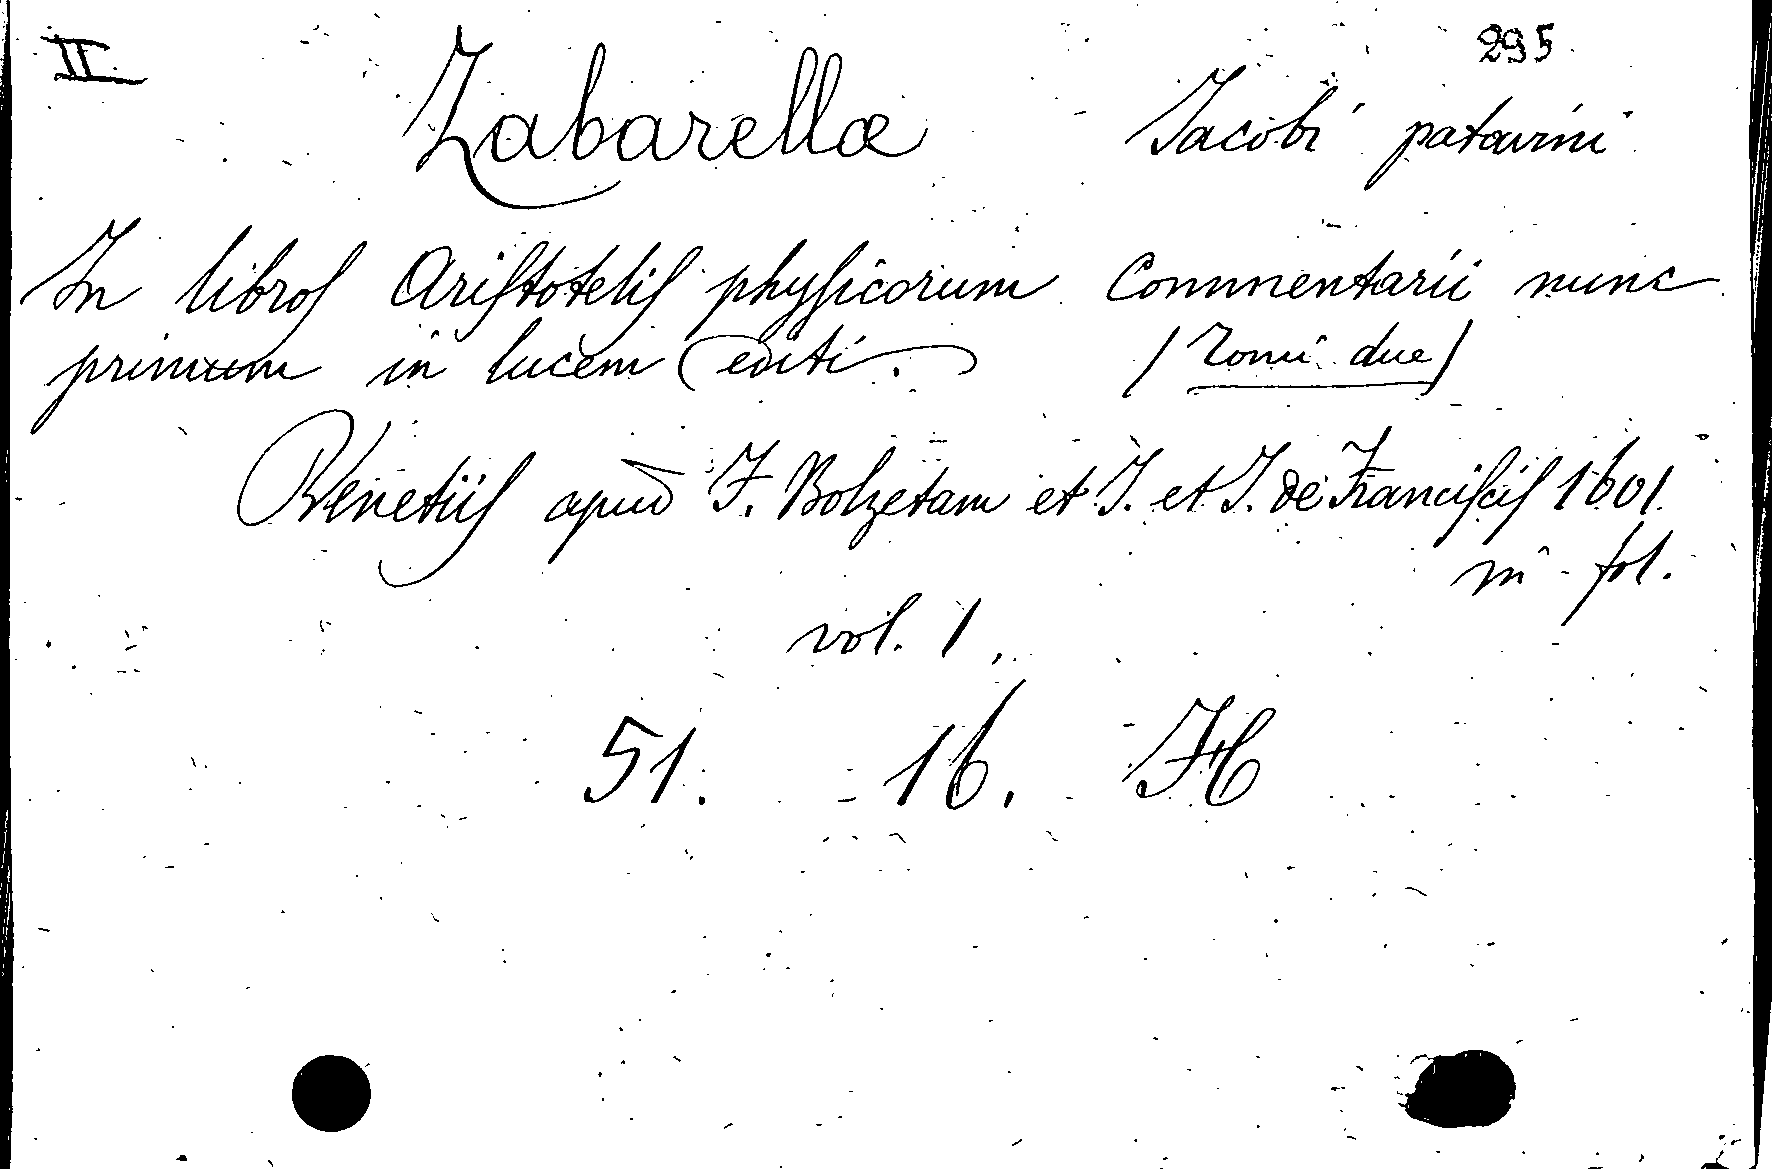 II 295
Zabarellæ Jacobi patavini
In libros Aristotelis physicorum Commentarii nunc
primum in lucem editi. (Tomi due)
Venetiis apud F. Bolzetam et J. et J. de Franciscis 1601
in-fol.
vol. 1.
51. 16. H